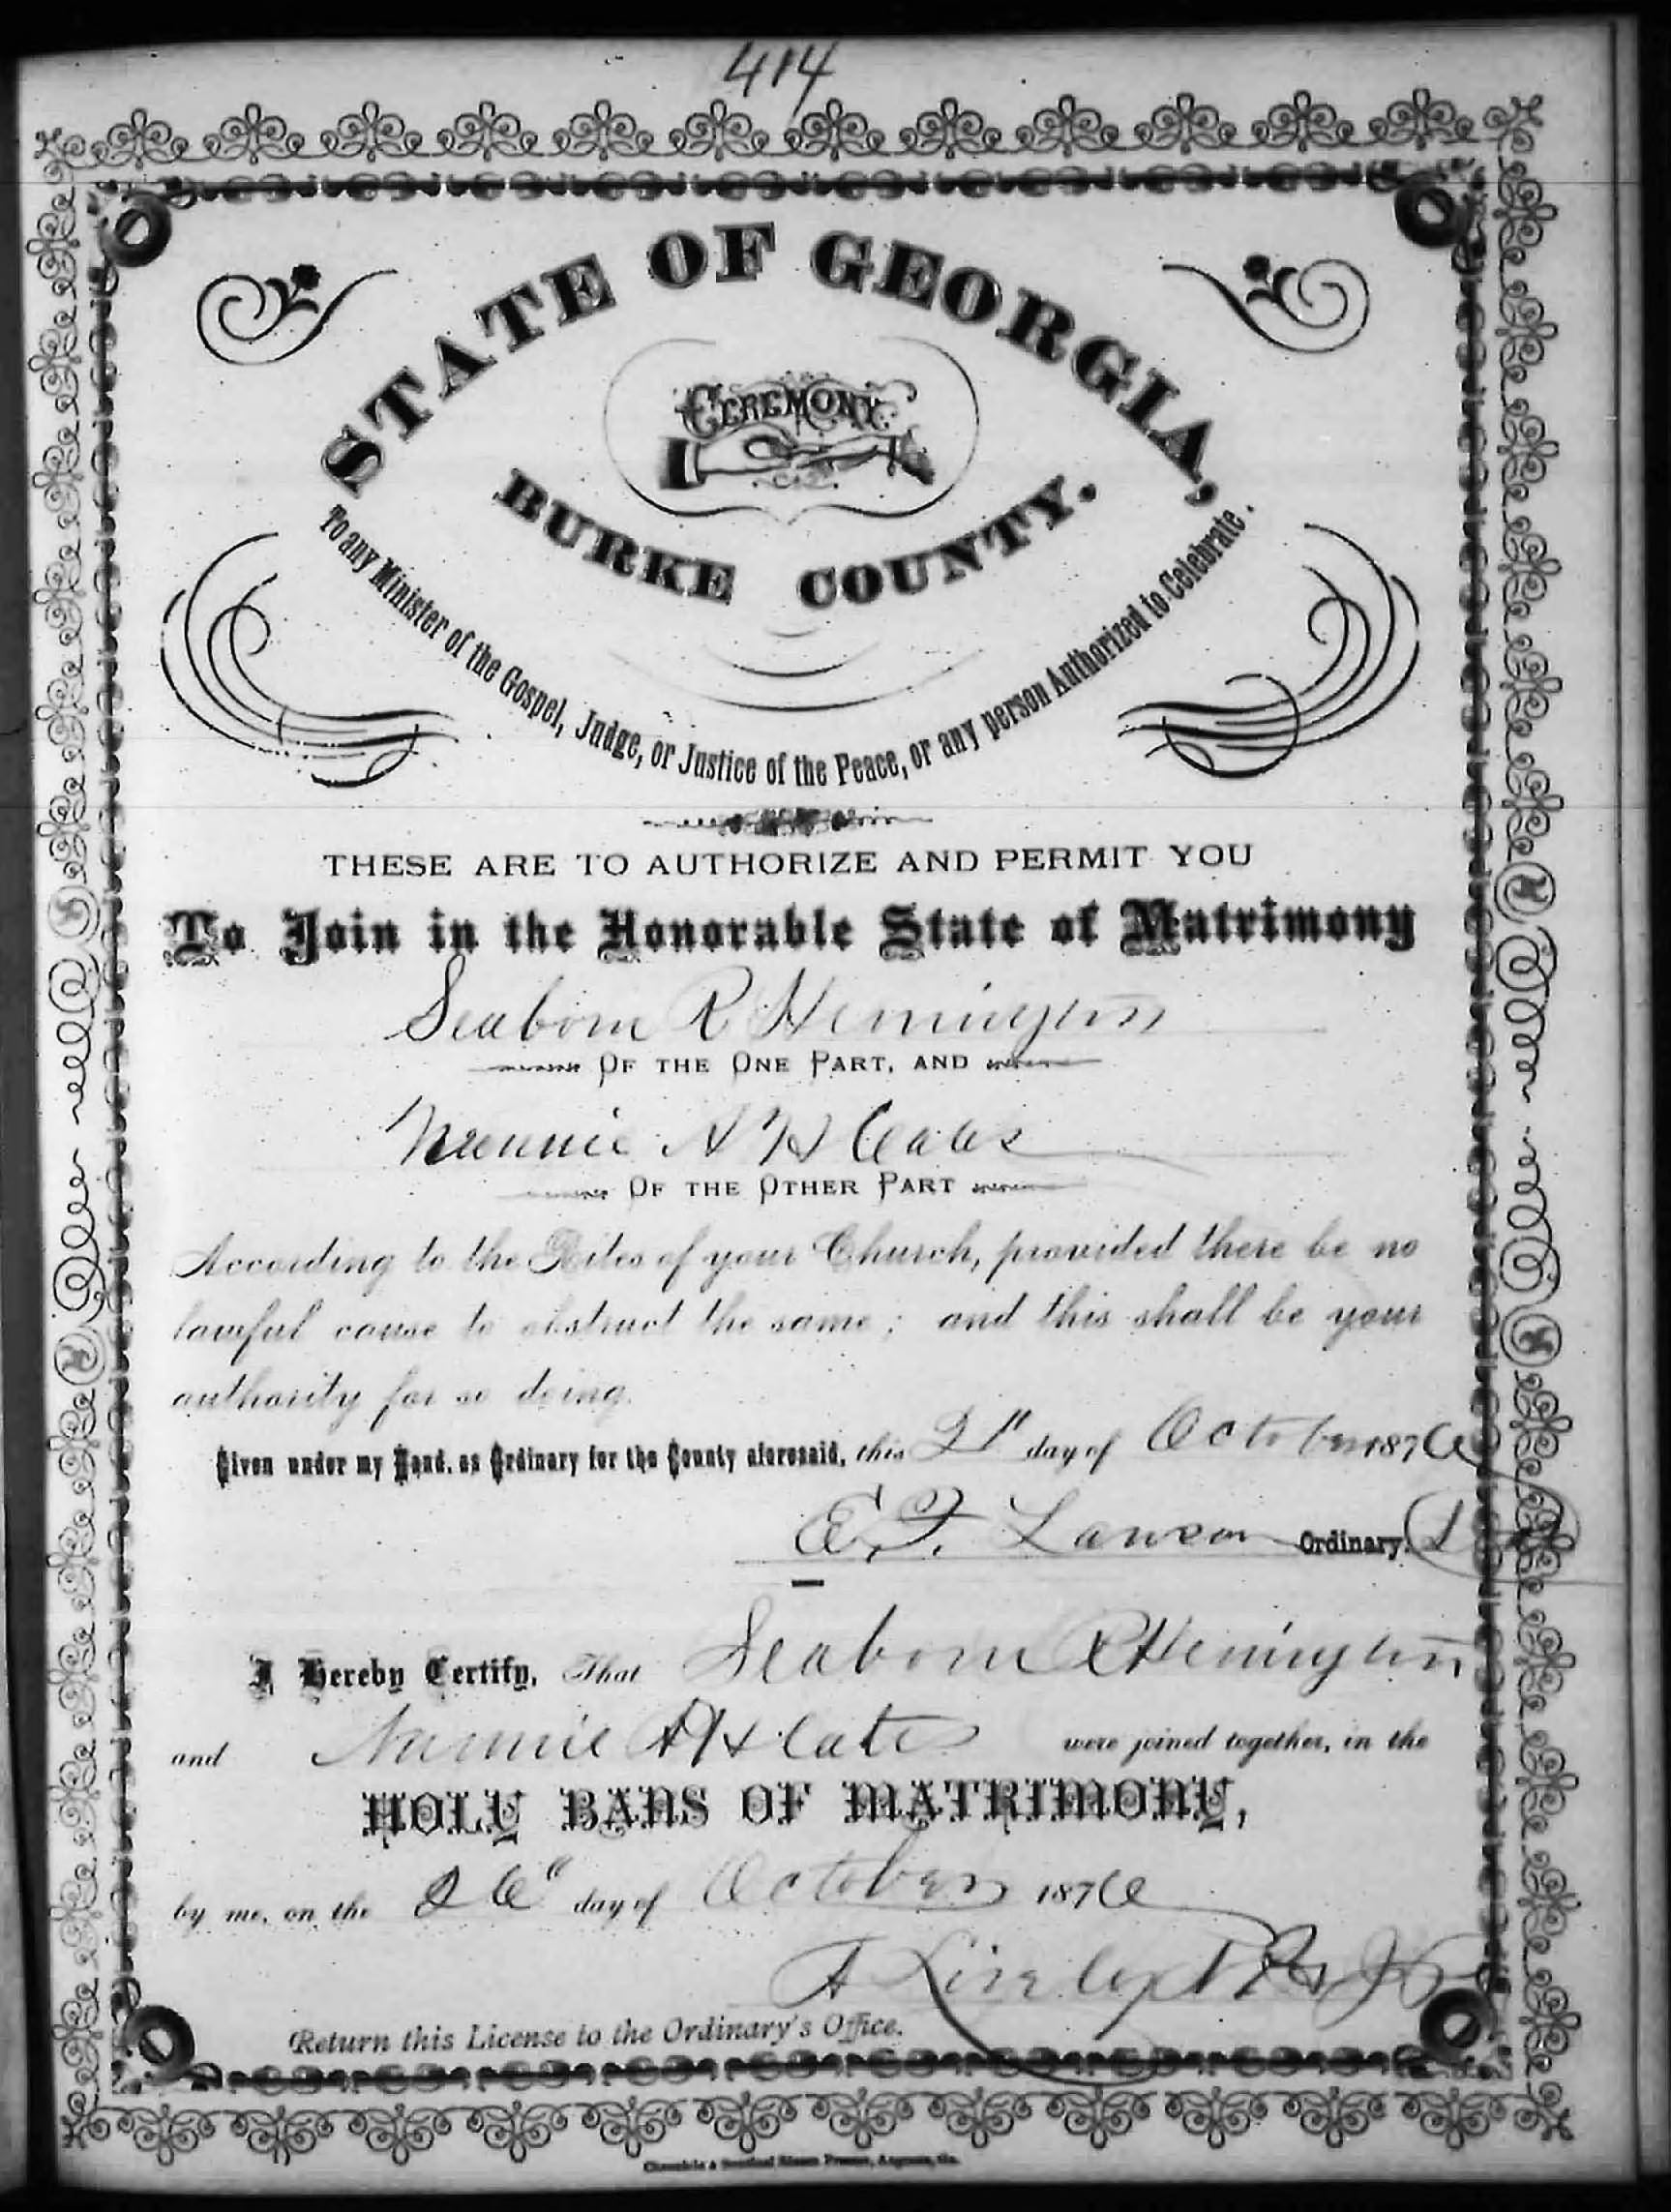 414
STATE OF GEORGIA,
CEREMONY
BURKE COUNTY.
To any Minister of the Gospel, Judge, or Justice of the Peace, or any person Authorized to Celebrate.
THESE ARE TO AUTHORIZE AND PERMIT YOU
To Join in the Honorable State of Matrimony
Seaborn R Hemington
OF THE ONE PART, AND
Nunnie A H Cates
OF THE OTHER PART
According to the Rites of your Church, provided there be no
lawful cause to obstruct the same; and this shall be your
authority for so doing.
Given under my Hand, as Ordinary for the County aforesaid, this 21" day of October 1876
E. F. Lawson Ordinary.
I Hereby Certify, That Seaborn R Hemington
and Nunnie A H Cates were joined together, in the
HOLY BANS OF MATRIMONY,
by me, on the 26" day of October 1876
A
Return this License to the Ordinary's Office.
Chronicle & Sentinel Steam Presses, Augusta, Ga.